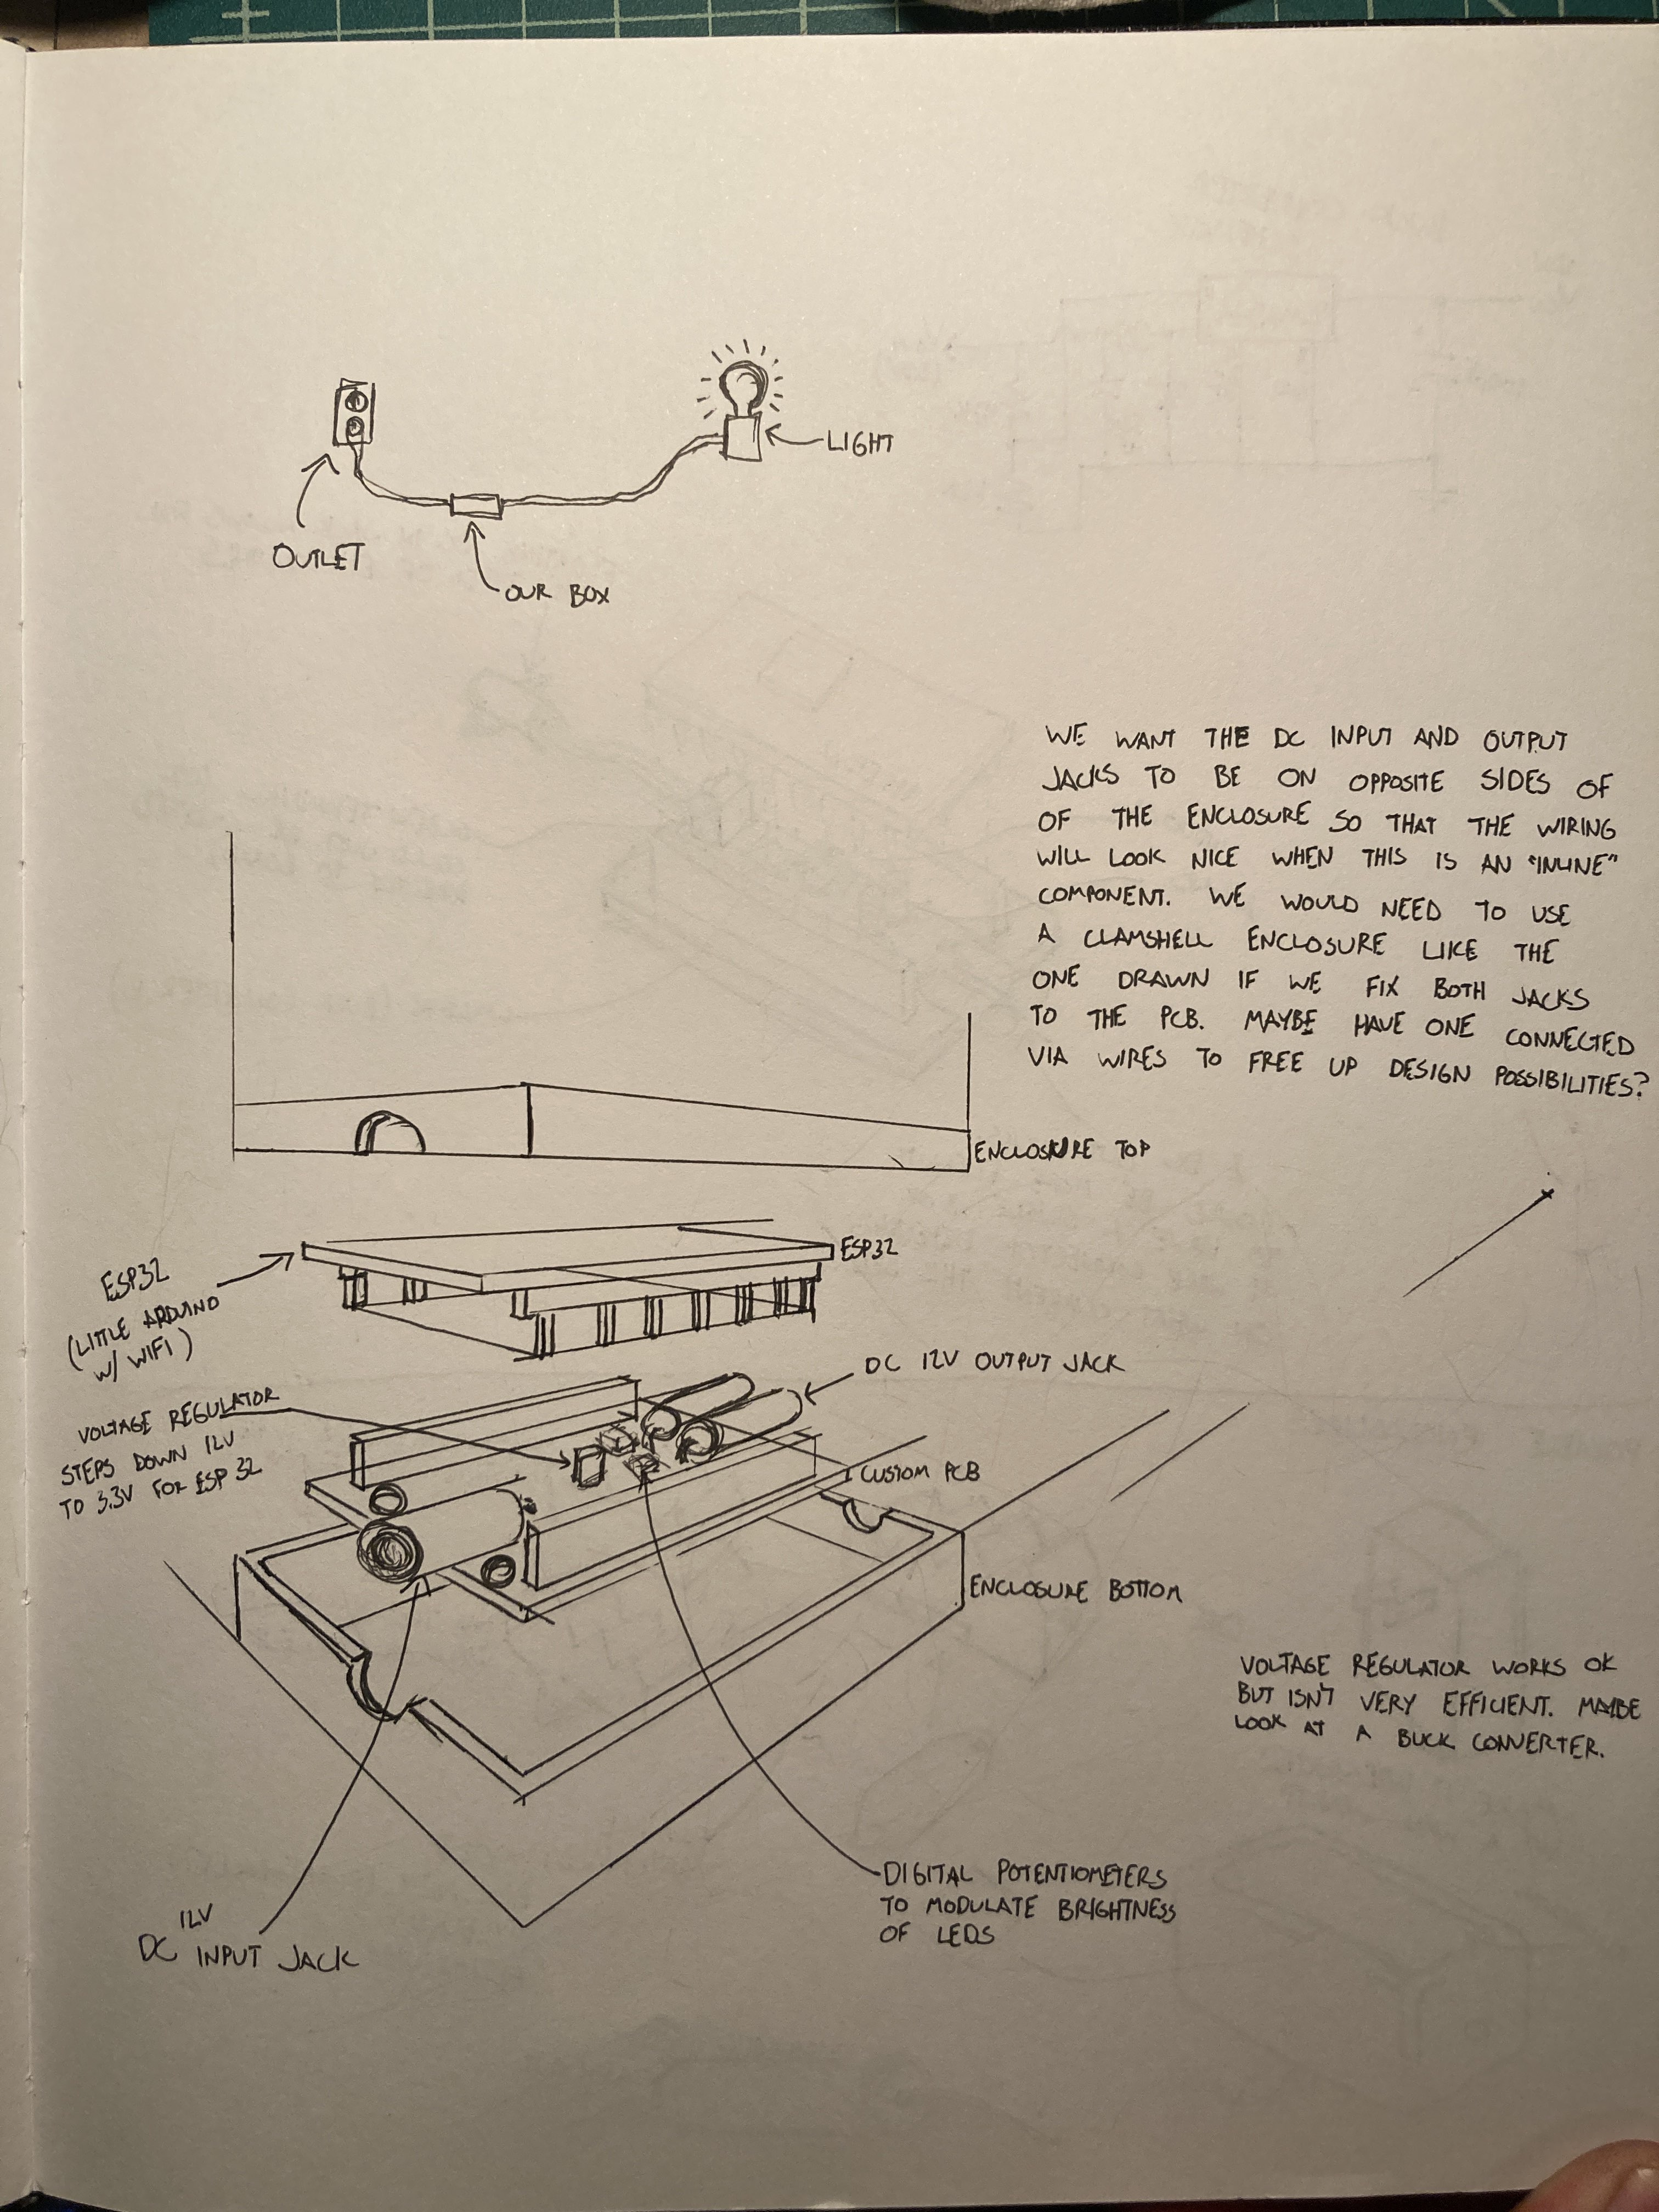 LIGHT
OUTLET
OUR BOX
WE WANT THE DC INPUT AND OUTPUT
JACKS TO BE ON OPPOSITE SIDES OF
OF THE ENCLOSURE SO THAT THE WIRING
WILL LOOK NICE WHEN THIS IS AN "INLINE"
COMPONENT. WE WOULD NEED TO USE
A CLAMSHELL ENCLOSURE LIKE THE
ONE DRAWN IF WE FIX BOTH JACKS
TO THE PCB. MAYBE HAVE ONE CONNECTED
VIA WIRES TO FREE UP DESIGN POSSIBILITIES?
ENCLOSURE TOP
ESP32
ESP32
(LITTLE ARDUINO
W/ WIFI)
DC 12V OUTPUT JACK
VOLTAGE REGULATOR
STEPS DOWN 12V
TO 3.3V FOR ESP 32
CUSTOM PCB
ENCLOSURE BOTTOM
VOLTAGE REGULATOR WORKS OK
BUT ISN'T VERY EFFICIENT. MAYBE
LOOK AT A BUCK CONVERTER.
DIGITAL POTENTIOMETERS
TO MODULATE BRIGHTNESS
OF LEDS
12V
DC INPUT JACK